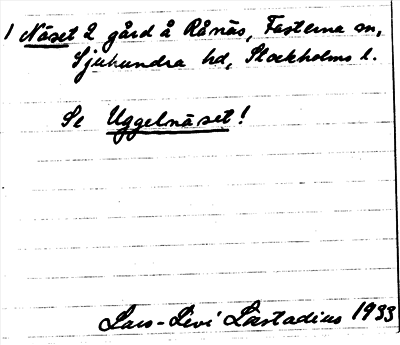 1 Näset 2 gård å Rånäs, Fasterna sn,
Sjuhundra hd, Stockholms l.
Se Uggelnäset!
Lars-Levi Læstadius 1933